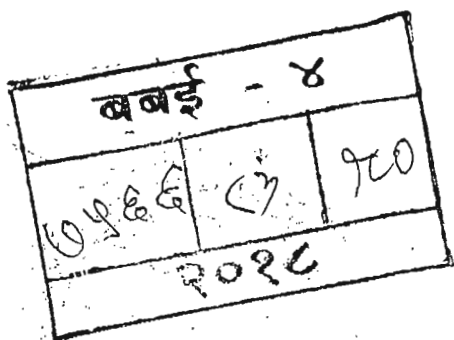 बबई - ४
७५६६ ८१०
२०१८